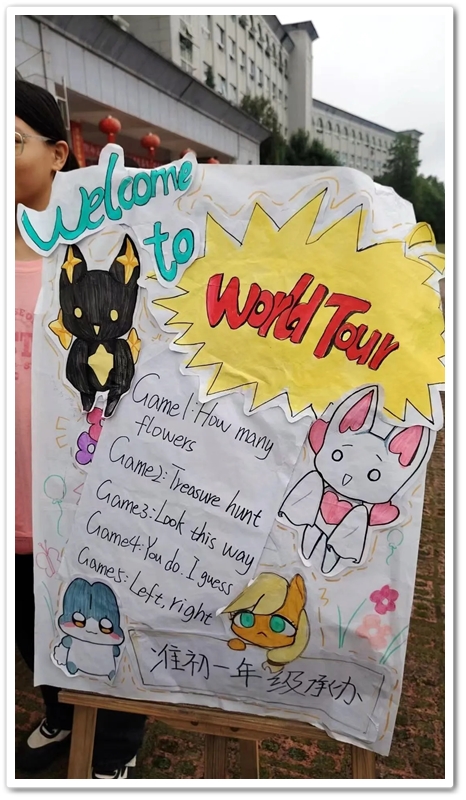 Welcome
to
World Tour
Game1:How many
flowers
Game2:Treasure hunt
Game3:Look this way
Game4:You do. I guess
Game5:Left,right
准初一年级承办